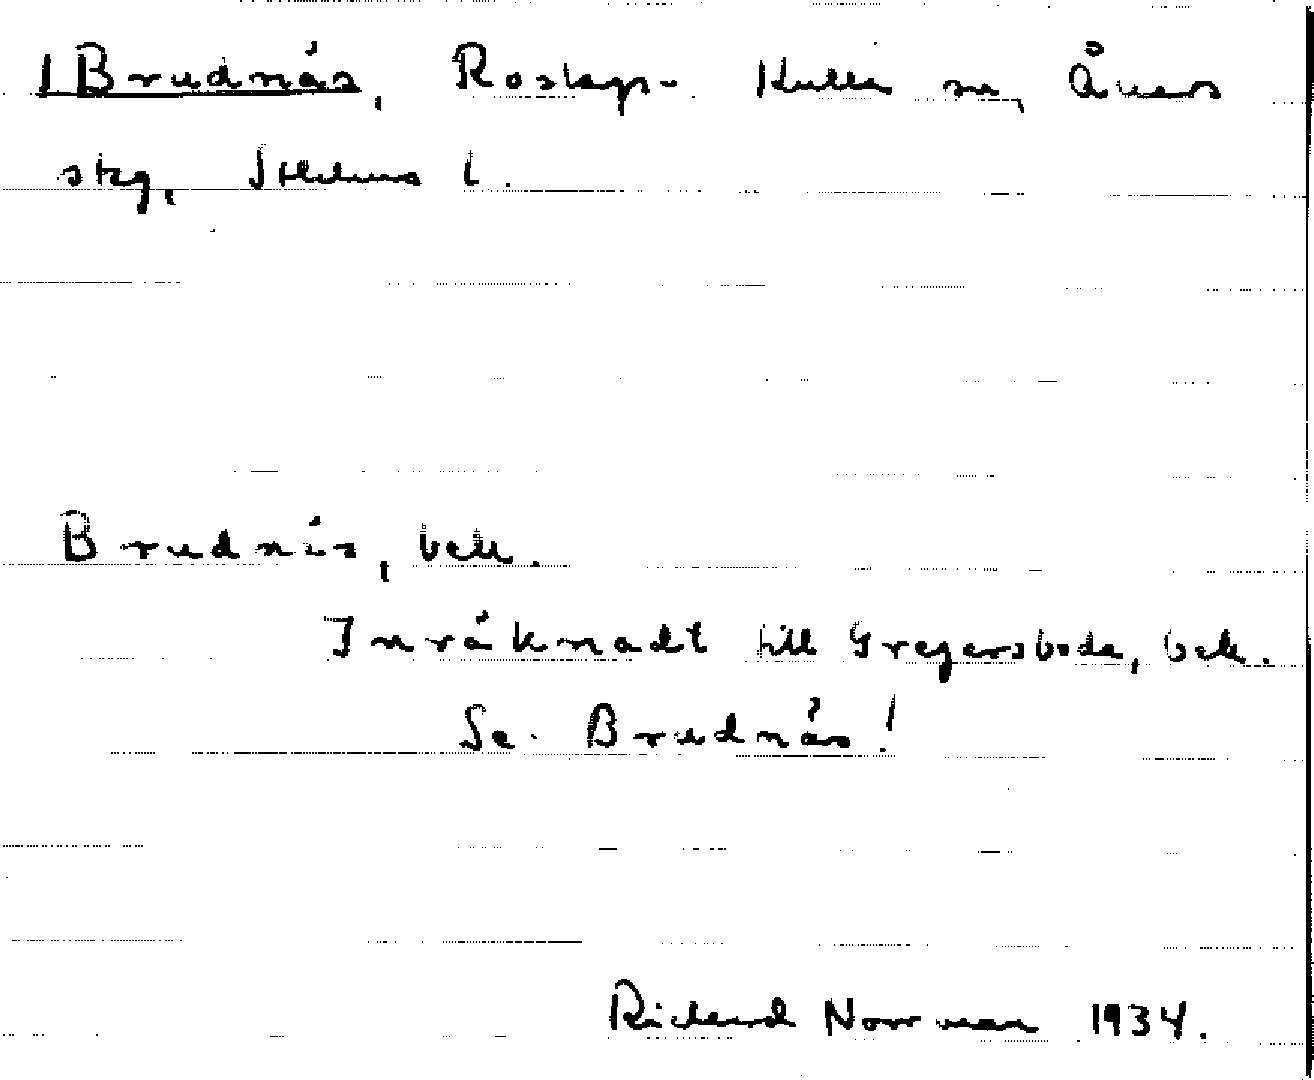 1 Brudnäs, Roslags-Kulla sn, Åkers
skg, Sthlms l.
Brudnäs, beb.
Inräknadt till Gregersboda, beb.
Se. Brudnäs!
Richard Norrman 1934.